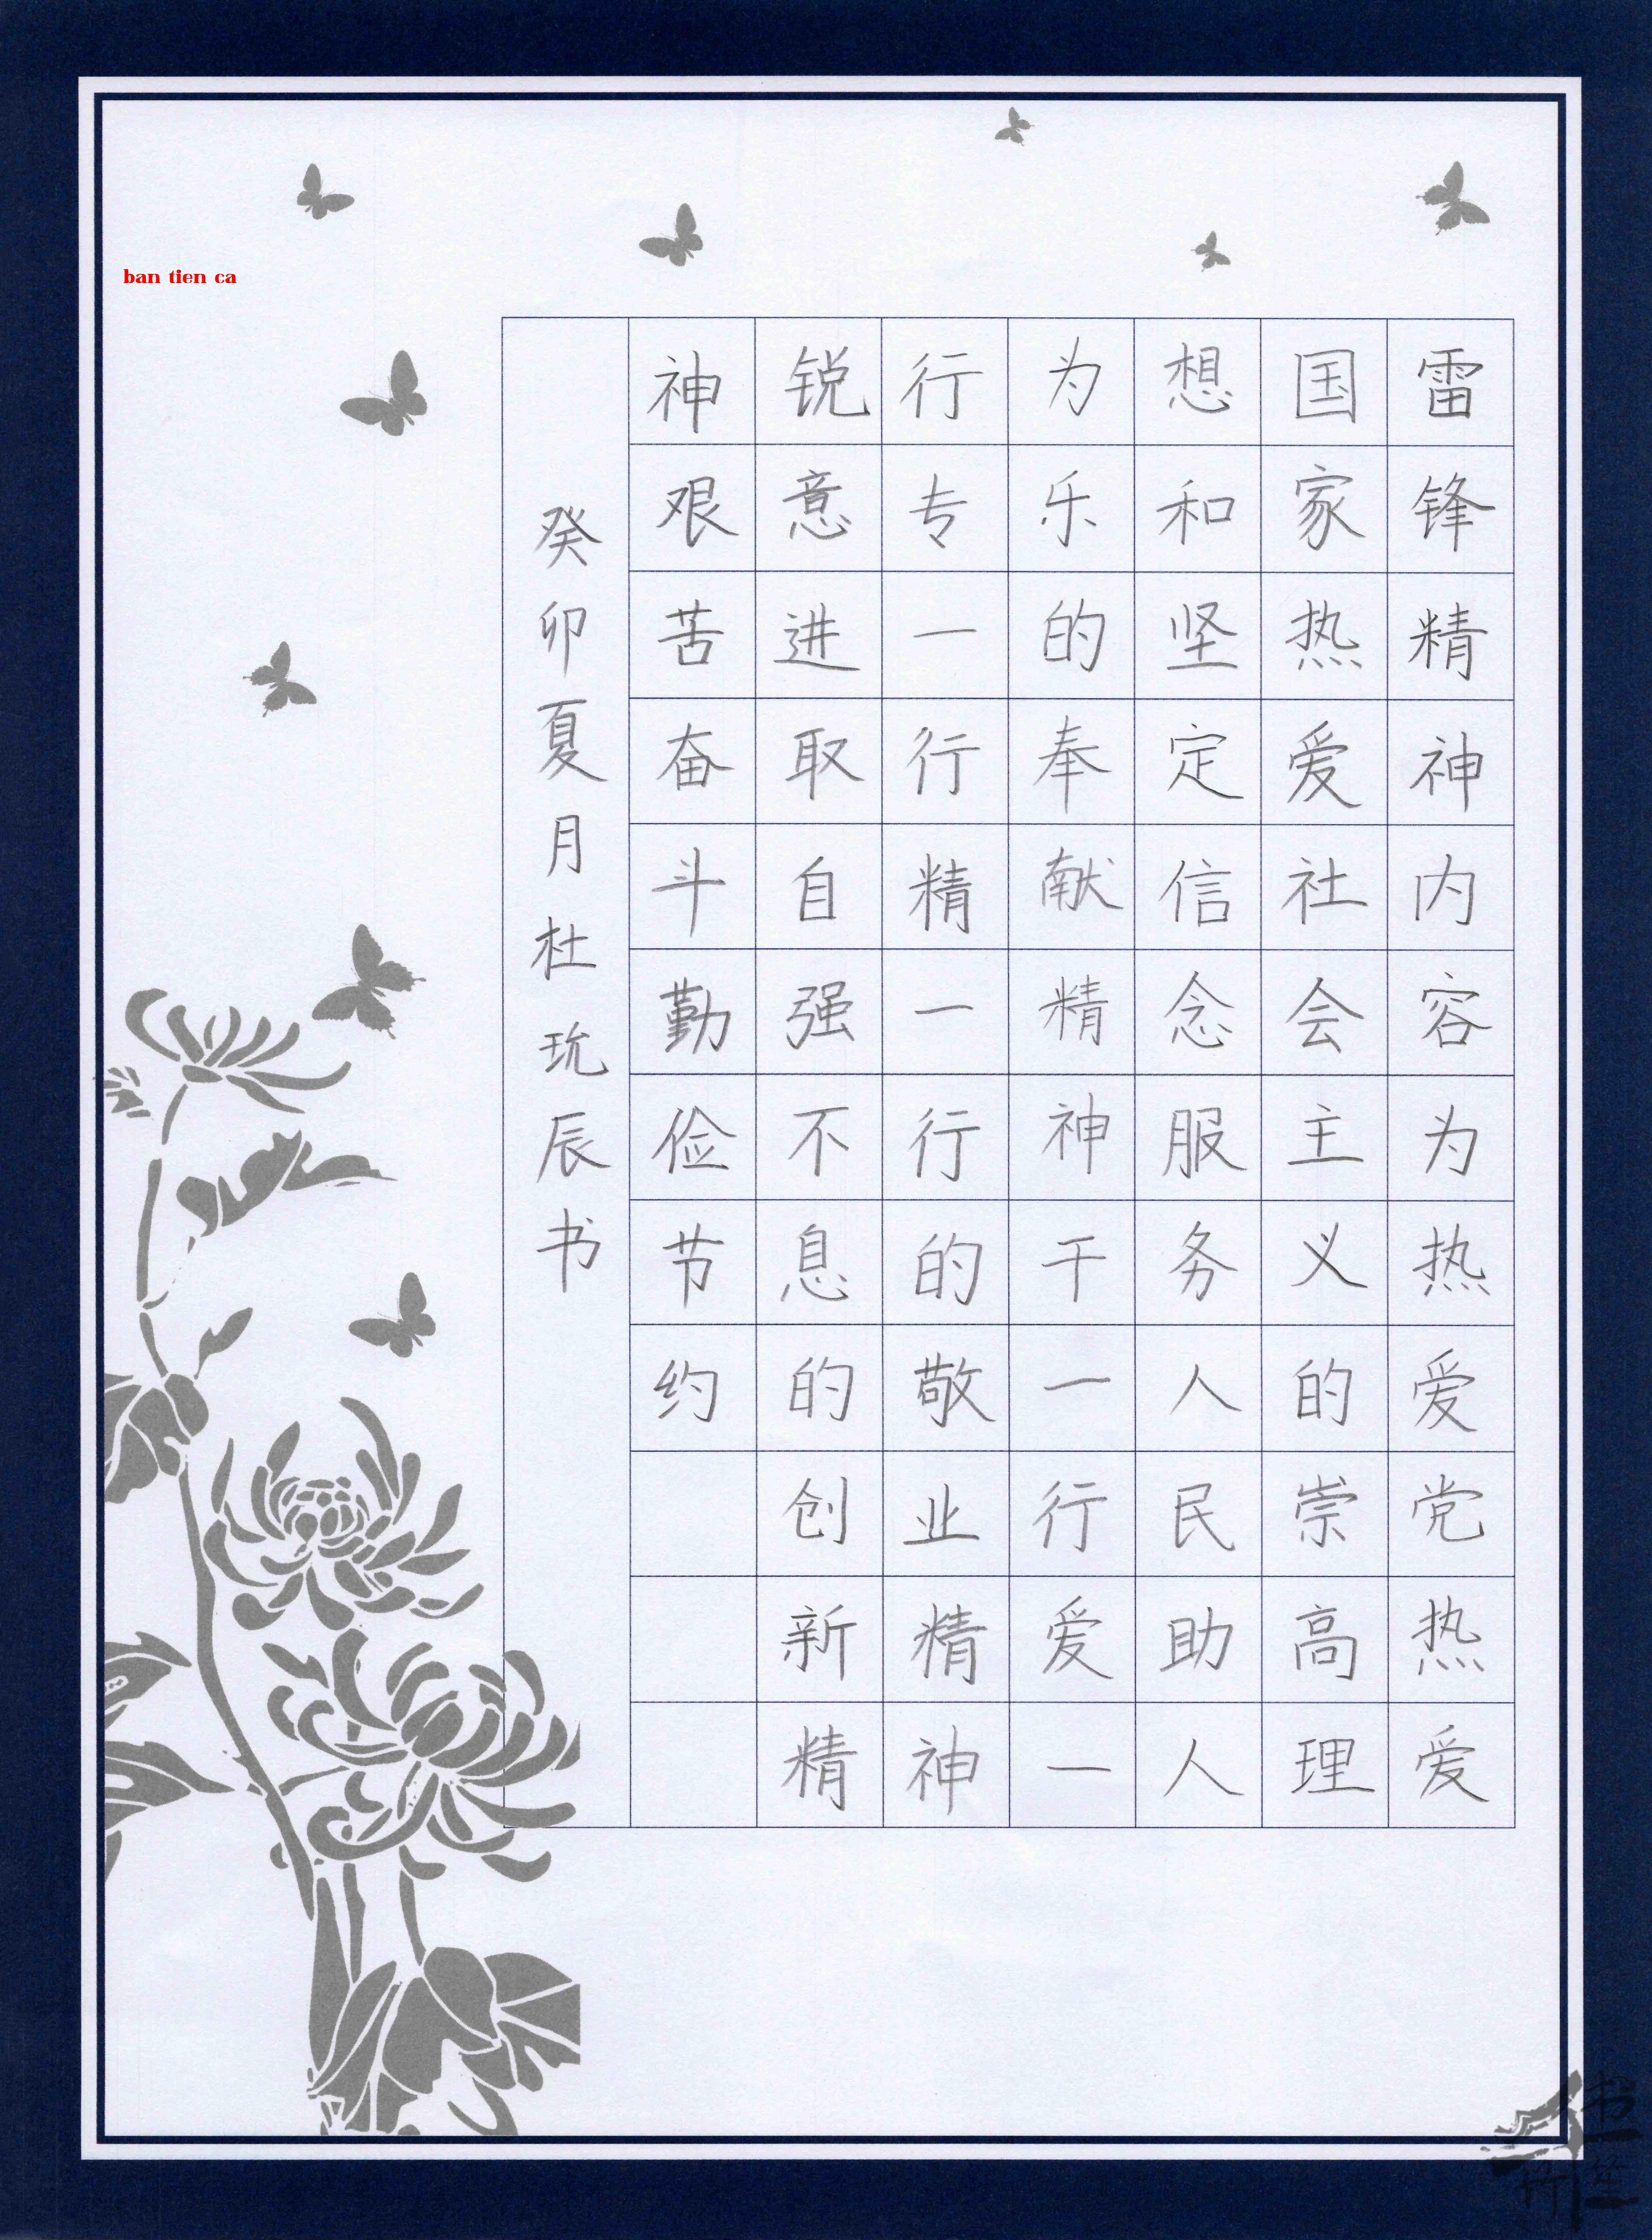 ban tien ca
雷锋精神内容为热爱党热爱
国家热爱社会主义的崇高理
想和坚定信念服务人民助人
为乐的奉献精神干一行爱一
行专一行精一行的敬业精神
锐意进取自强不息的创新精
神艰苦奋斗勤俭节约
癸卯夏月杜玧辰书